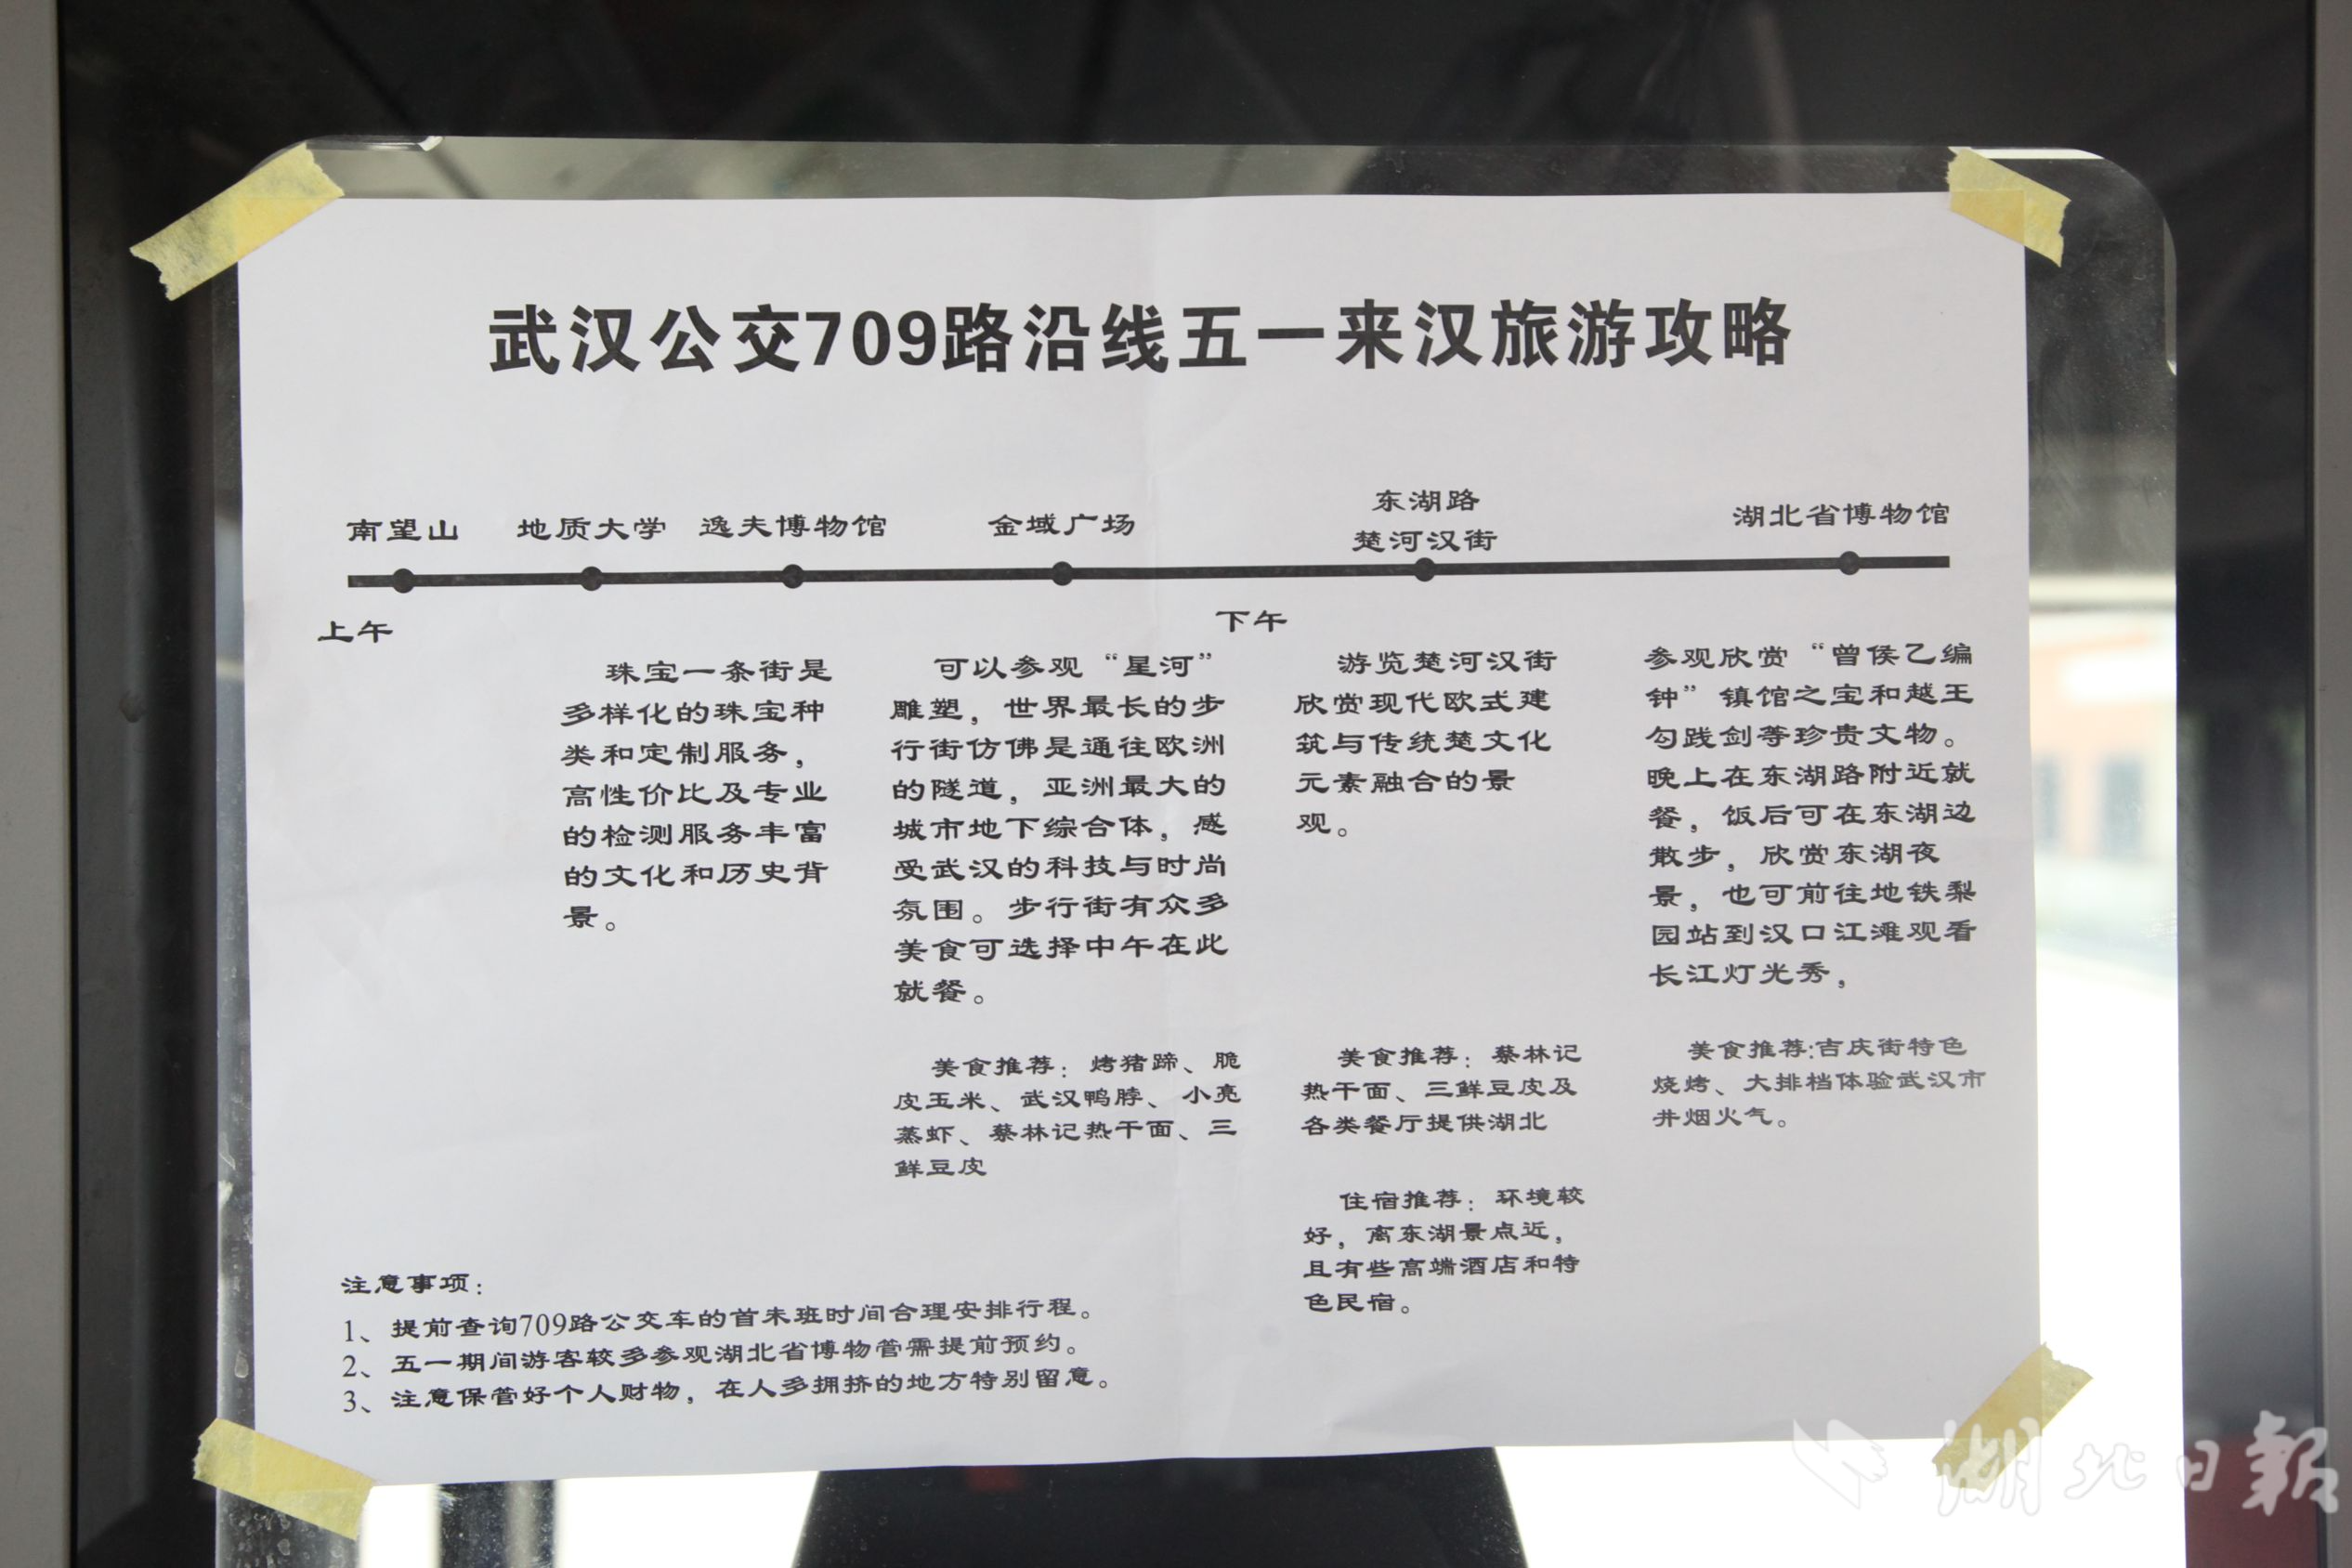 武汉公交709路沿线五一来汉旅游攻略
南望山
地质大学
逸夫博物馆
金域广场
东湖路
楚河汉街
湖北省博物馆
上午
下午
珠宝一条街是
多样化的珠宝种
类和定制服务，
高性价比及专业
的检测服务丰富
的文化和历史背
景。
可以参观“星河”
雕塑，世界最长的步
行街仿佛是通往欧洲
的隧道，亚洲最大的
城市地下综合体，感
受武汉的科技与时尚
氛围。步行街有众多
美食可选择中午在此
就餐。
美食推荐：烤猪蹄、脆
皮玉米、武汉鸭脖、小亮
蒸虾、蔡林记热干面、三
鲜豆皮
游览楚河汉街
欣赏现代欧式建
筑与传统楚文化
元素融合的景
观。
美食推荐：蔡林记
热干面、三鲜豆皮及
各类餐厅提供湖北
住宿推荐：环境较
好，离东湖景点近，
且有些高端酒店和特
色民宿。
参观欣赏“曾侯乙编
钟”镇馆之宝和越王
勾践剑等珍贵文物。
晚上在东湖路附近就
餐，饭后可在东湖边
散步，欣赏东湖夜
景，也可前往地铁梨
园站到汉口江滩观看
长江灯光秀，
美食推荐:吉庆街特色
烧烤、大排档体验武汉市
井烟火气。
注意事项：
1、提前查询709路公交车的首末班时间合理安排行程。
2、五一期间游客较多参观湖北省博物管需提前预约。
3、注意保管好个人财物，在人多拥挤的地方特别留意。
湖北日報